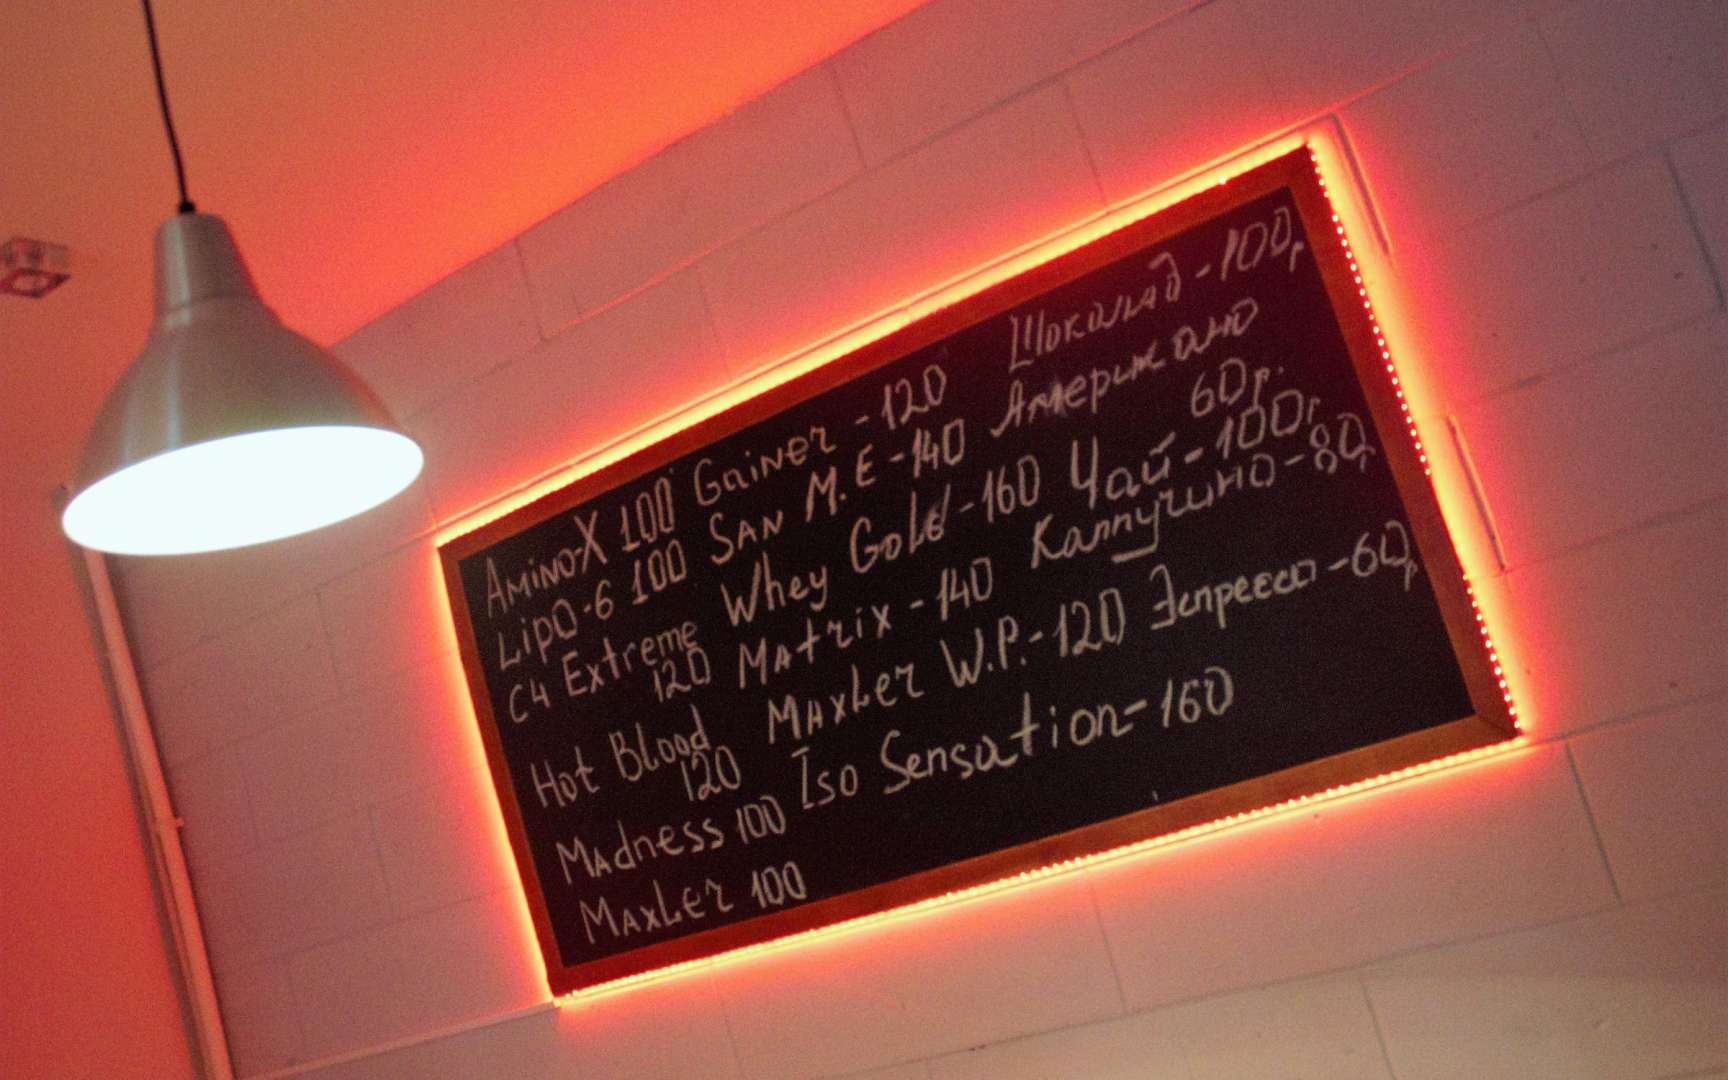 Amino-X 100
Lipo-6 100
C4 Extreme
120
Hot Blood
120
Madness 100
Maxler 100
Gainer - 120
SAN M.E - 140
Whey Gold - 160
Matrix - 140
Maxler W.P. - 120
Iso Sensation - 160
Шоколад - 100р
Американо
60р.
Чай - 100р
Каппучино - 80р
Эспрессо - 60р